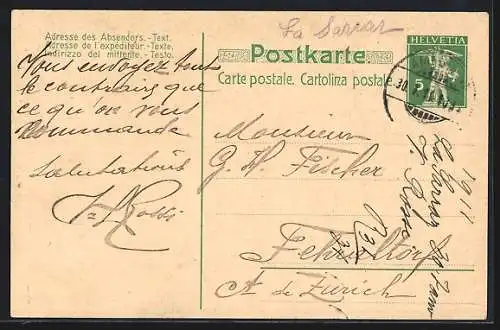 La Sarraz
Adresse des Absenders.-Text.
Adresse de l'expéditeur.-Texte.
Indirizzo del mittente.-Testo.
Postkarte
Carte postale. Cartolina postale
HELVETIA
Vous envoyez tout
le contraire que
ce qu'on vous
commande
Salutations
Rossi
Monsieur
G. H. Fischer
Fehraltorf
Ct de Zürich
1911
La Sarraz 30